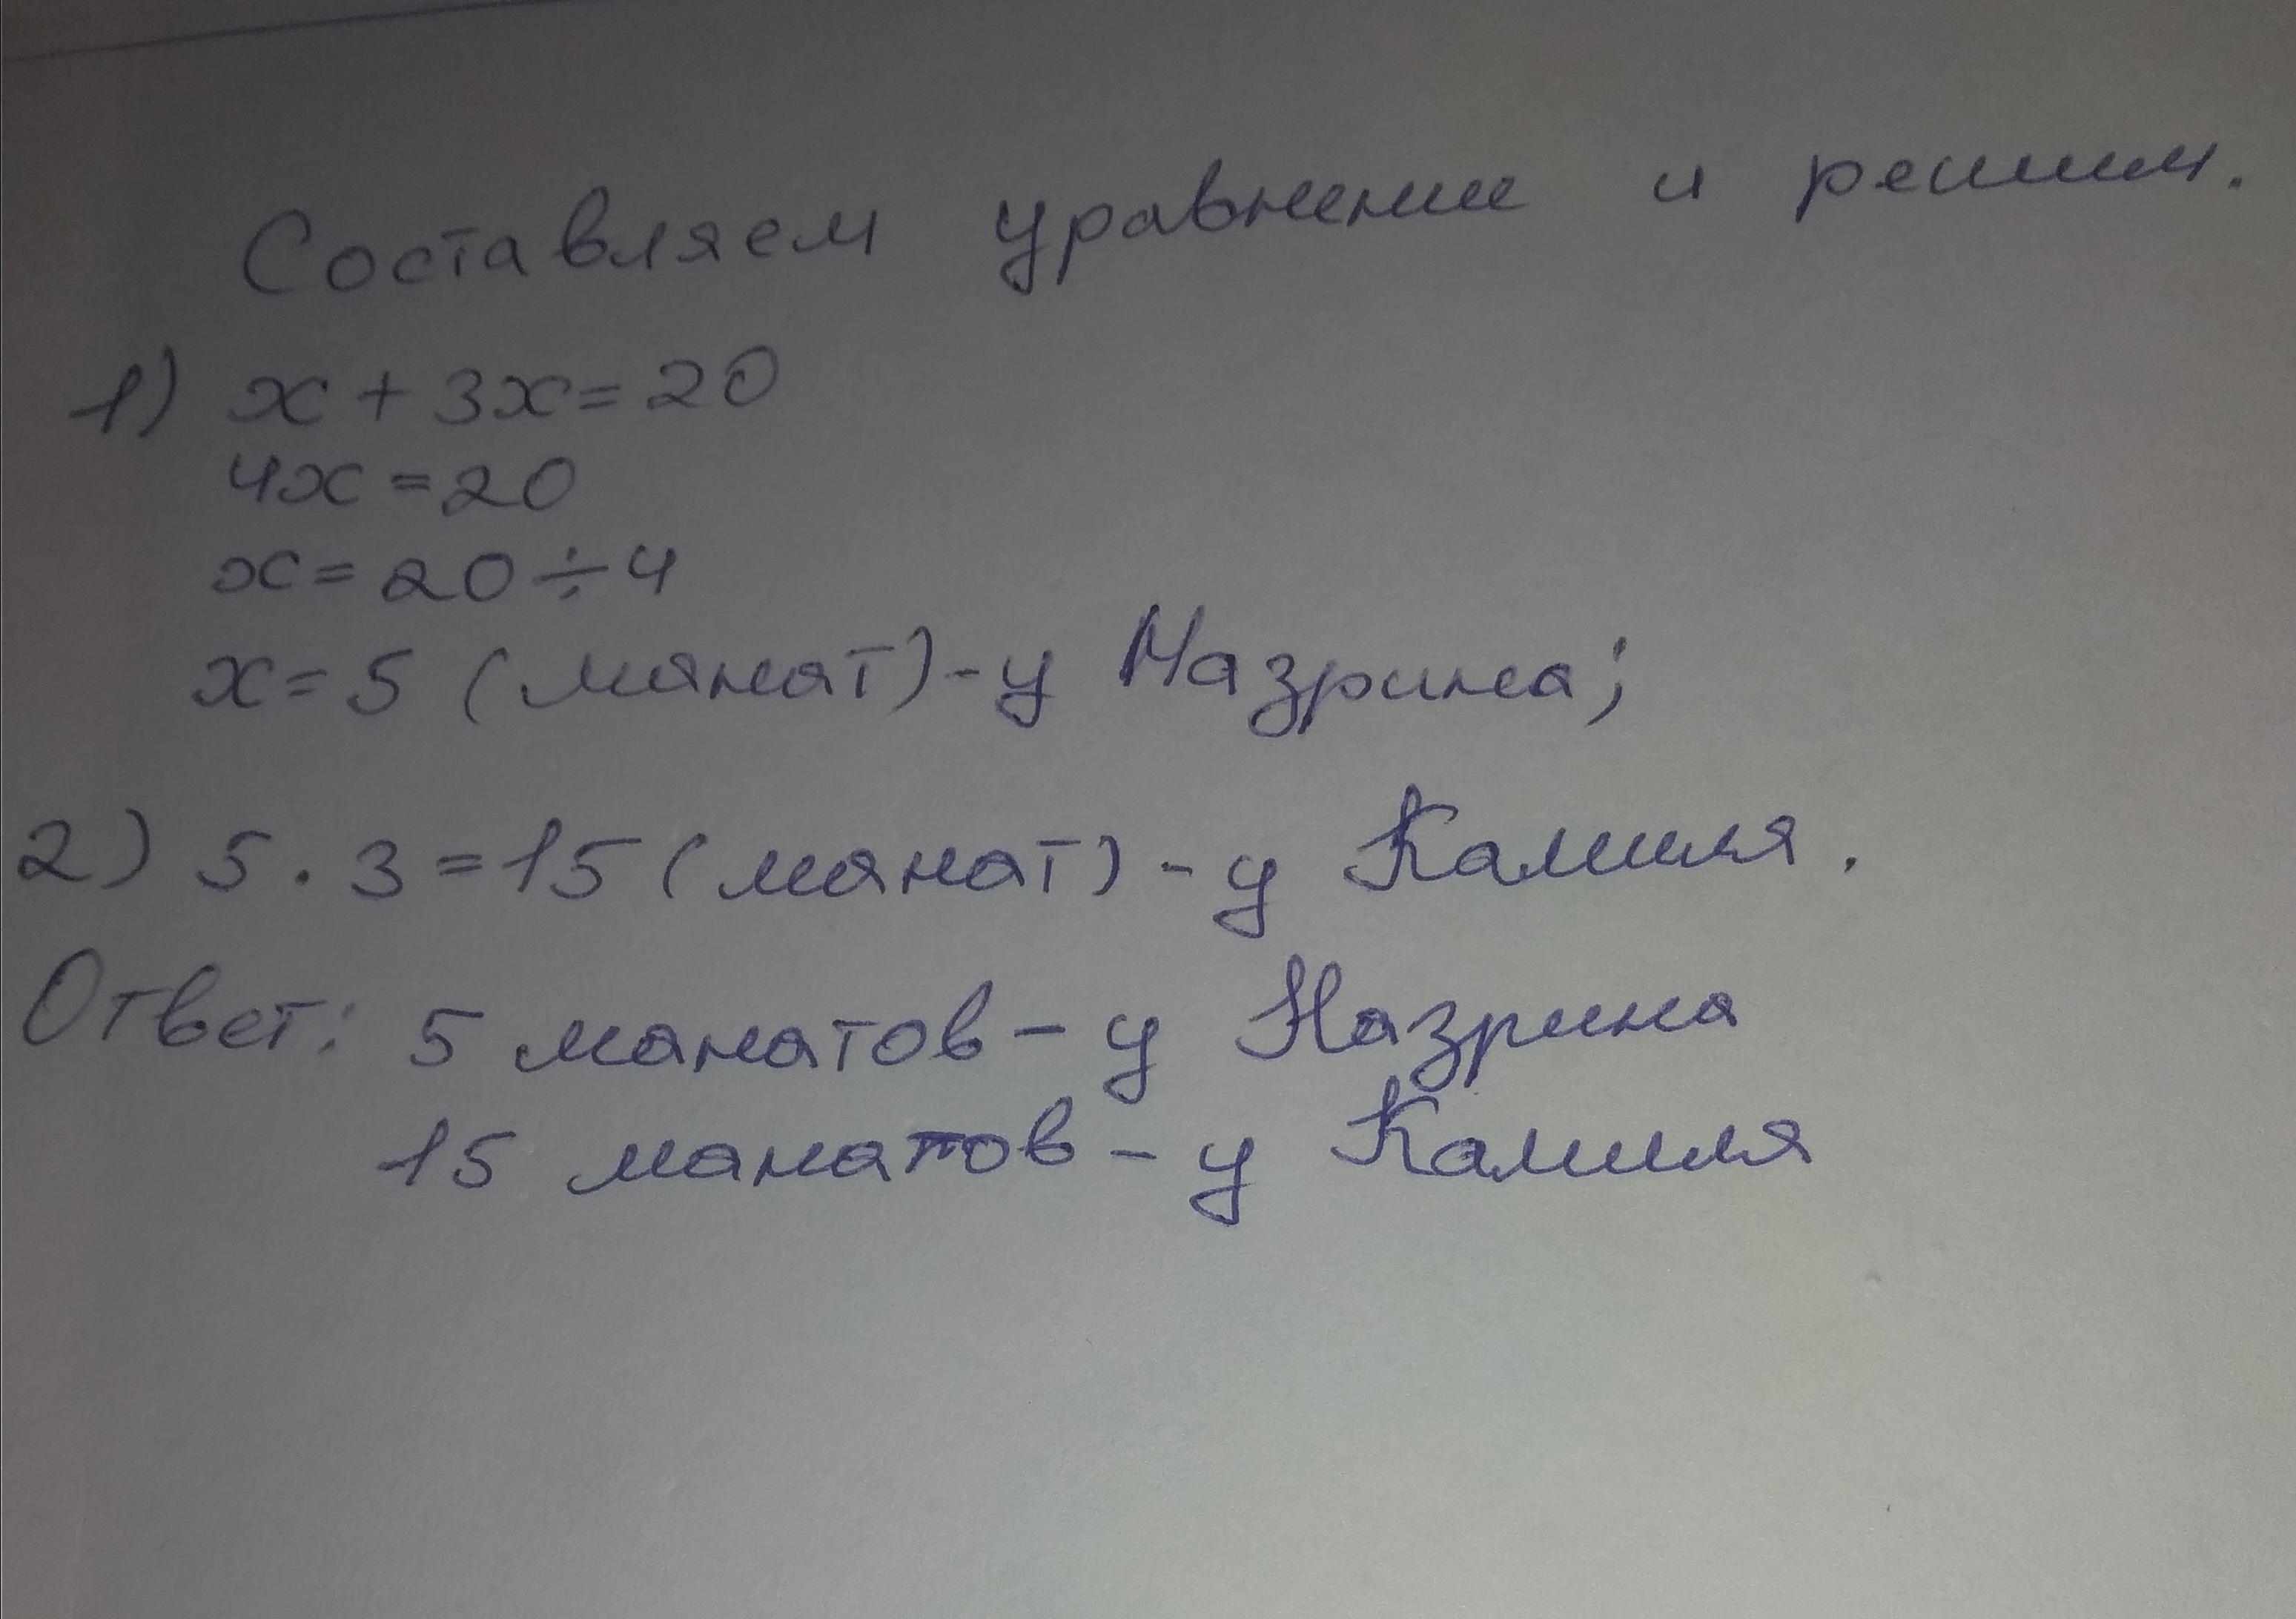 Составляем уравнение и решим.
1) x + 3x = 20
4x = 20
x = 20 ÷ 4
x = 5 (манат) - у Назрина;
2) 5 · 3 = 15 (манат) - у Камиля.
Ответ: 5 манатов - у Назрина
15 манатов - у Камиля